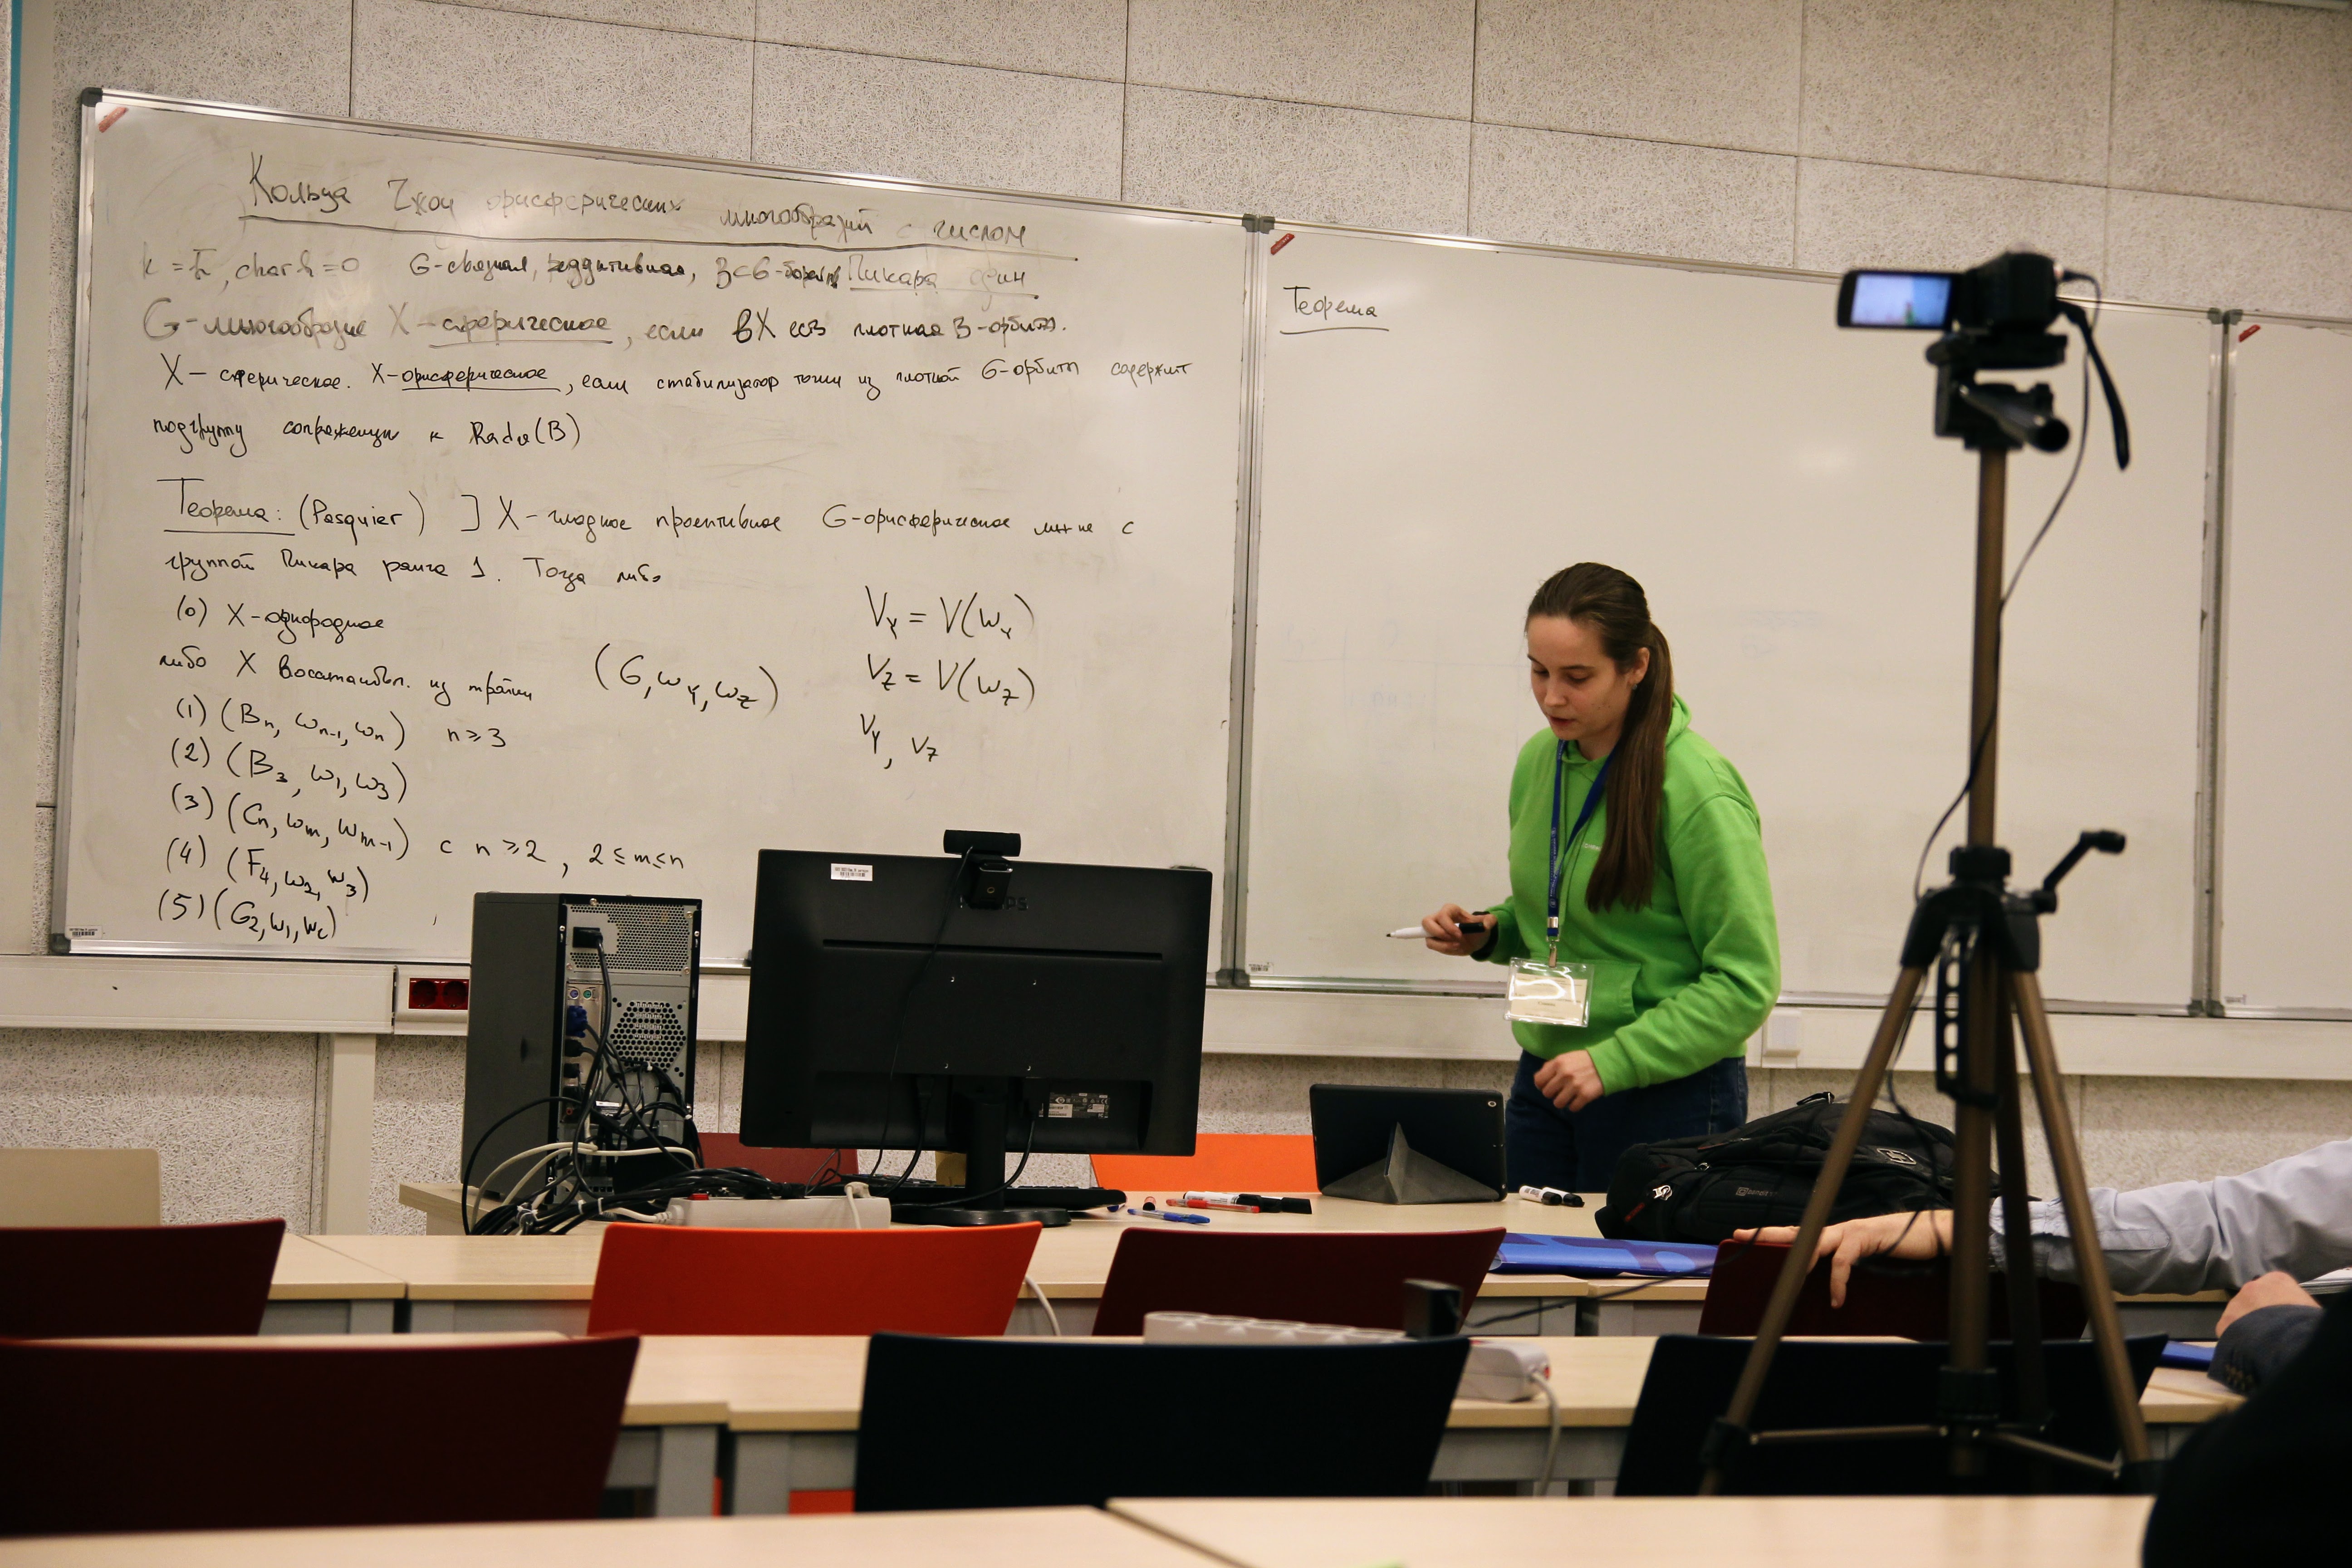 Кольца Чжоу орисферических многообразий с числом
Пикара один
k = k̄, char k = 0 G-связная, редуктивная, B⊂G-борел.
G-многообразие X-сферическое, если в X есть плотная B-орбита.
X - сферическое. X-орисферическое, если стабилизатор точки из плотной G-орбиты содержит
подгруппу сопряженную к Radu(B)
Теорема: (Pasquier) ] X - гладкое проективное G-орисферическое мн-ие с
группой Пикара ранга 1. Тогда либо
(0) X-однородное
либо X восстановл. из тройки (G, ω_Y, ω_Z)
(1) (B_n, ω_{n-1}, ω_n) n ≥ 3
(2) (B_3, ω_1, ω_3)
(3) (C_n, ω_m, ω_{m-1}) с n ≥ 2, 2 ≤ m ≤ n
(4) (F_4, ω_2, ω_3)
(5) (G_2, ω_1, ω_2)
V_Y = V(ω_Y)
V_Z = V(ω_Z)
v_Y, v_Z
Теорема